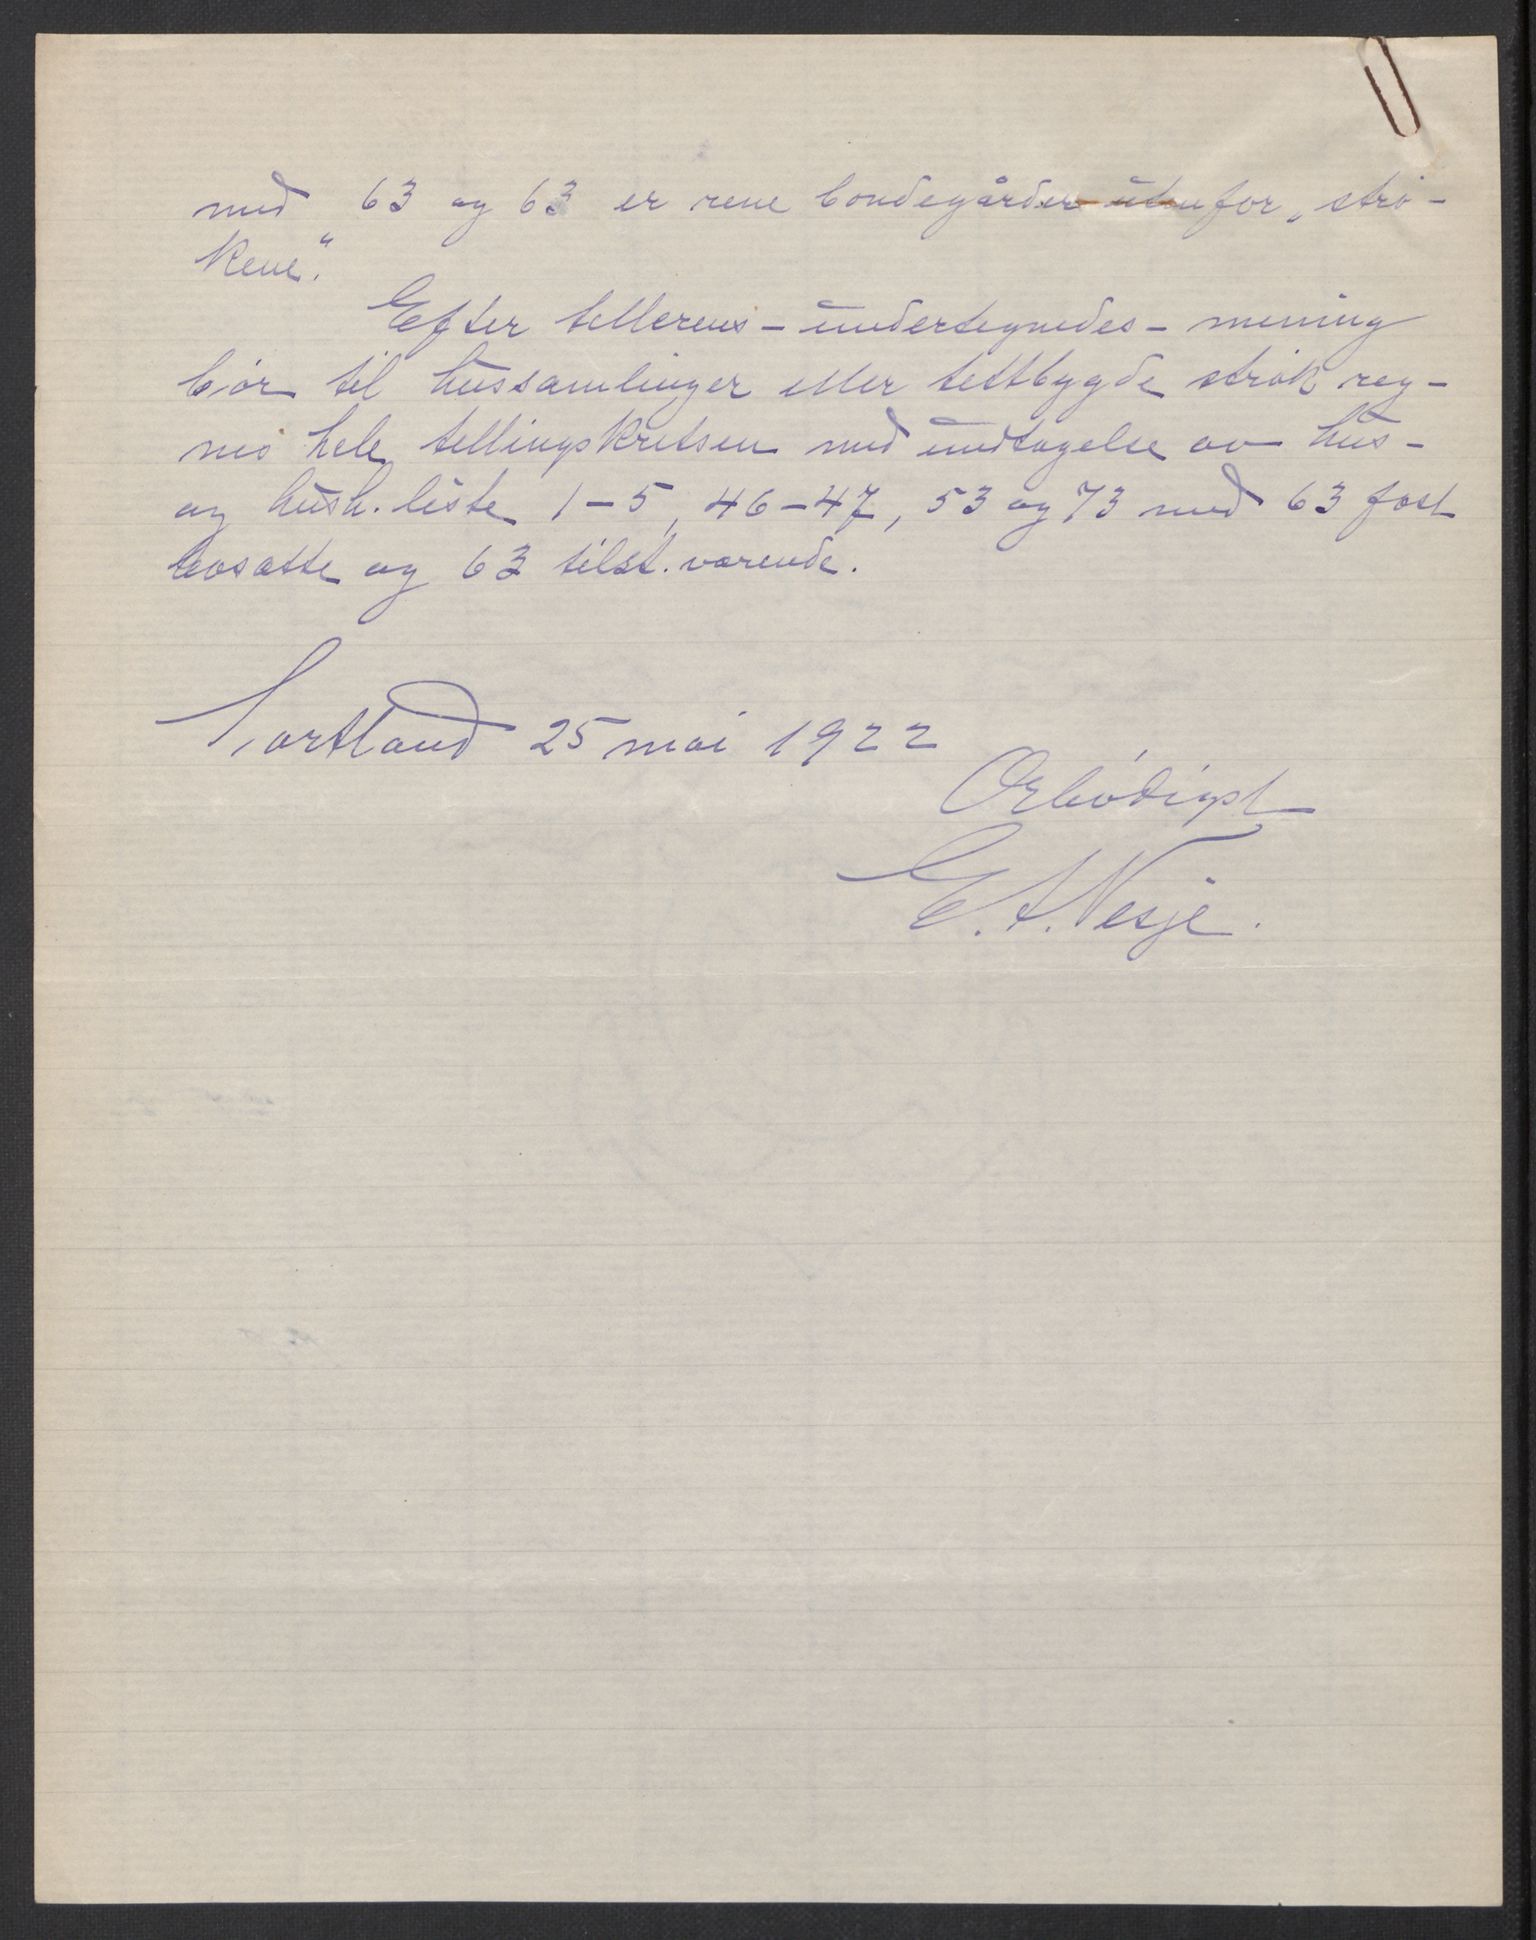 med 63 og 63 er rene bondegårder utenfor „strø-
kene."
Efter tellerens - undertegnedes - mening
bør til hussamlinger eller tettbygde strøk reg-
nes hele tellingskretsen med undtagelse av hus-
og hush. liste 1-5, 46-47, 53 og 73 med 63 fast
bosatte og 63 tilst. værende.
Sortland 25 mai 1922
Ærbødigst
E. A. Nesje.